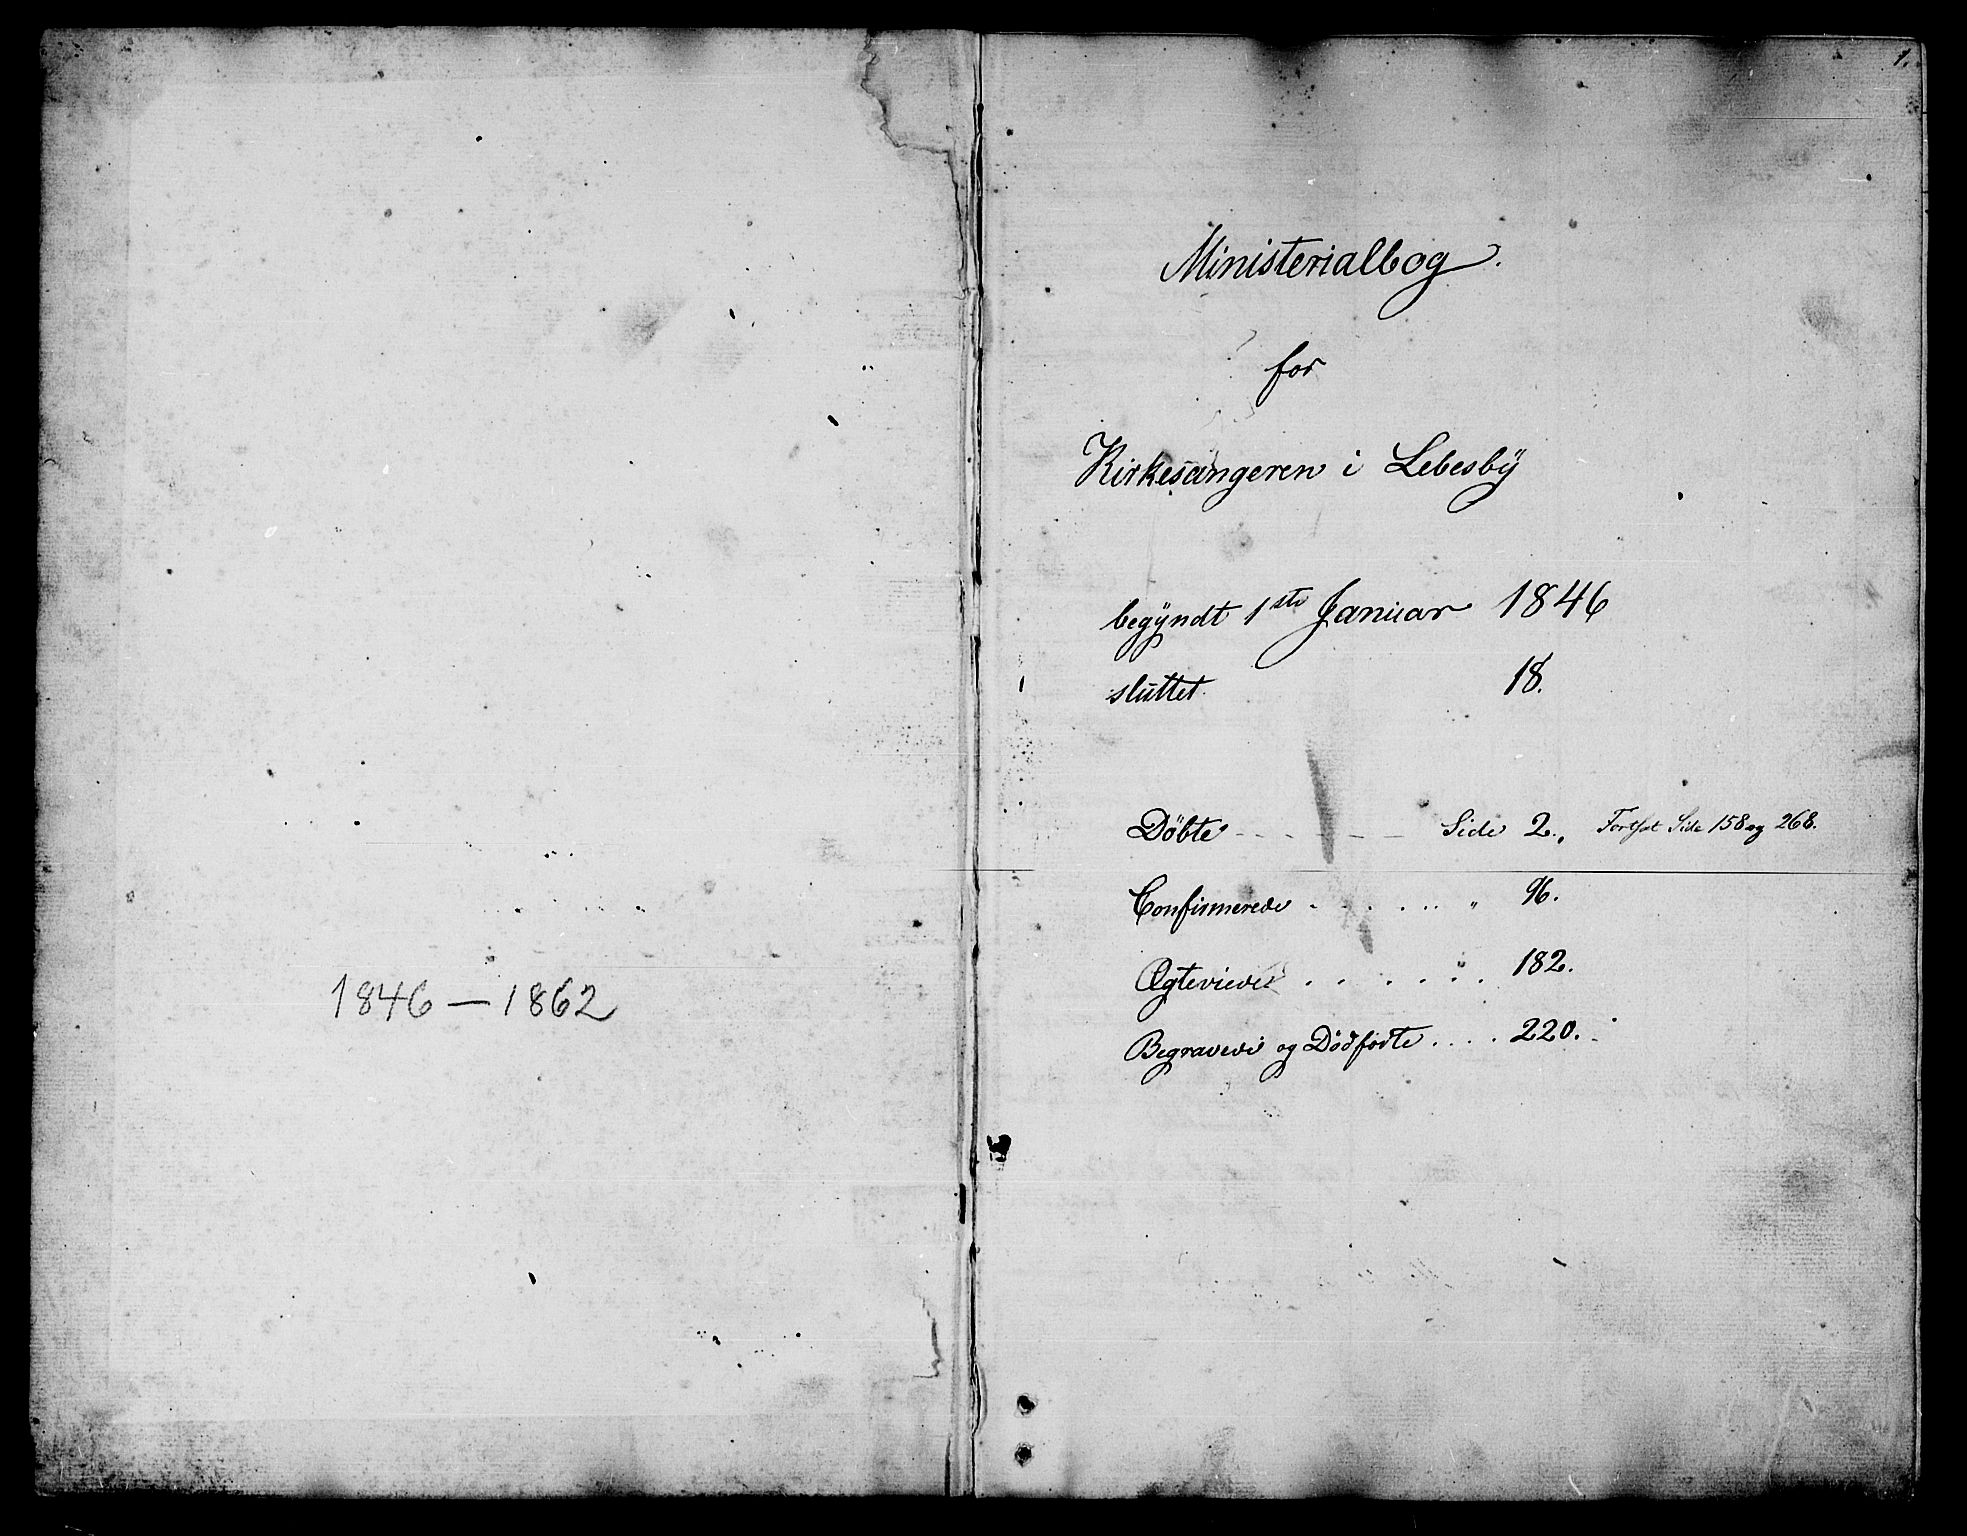 1846 — 1862
1.
Ministerialbog.
for
Kirkesangeren i Lebesby
begyndt 1ste Januar 1846
sluttet 18.
Døbte - - - - - Side 2., Forts. Side 158 og 268.
Confirmerede . . . . . . " 96.
Ægteviede . . . . . " . 182.
Begravede og Dødfødte . . . . 220.